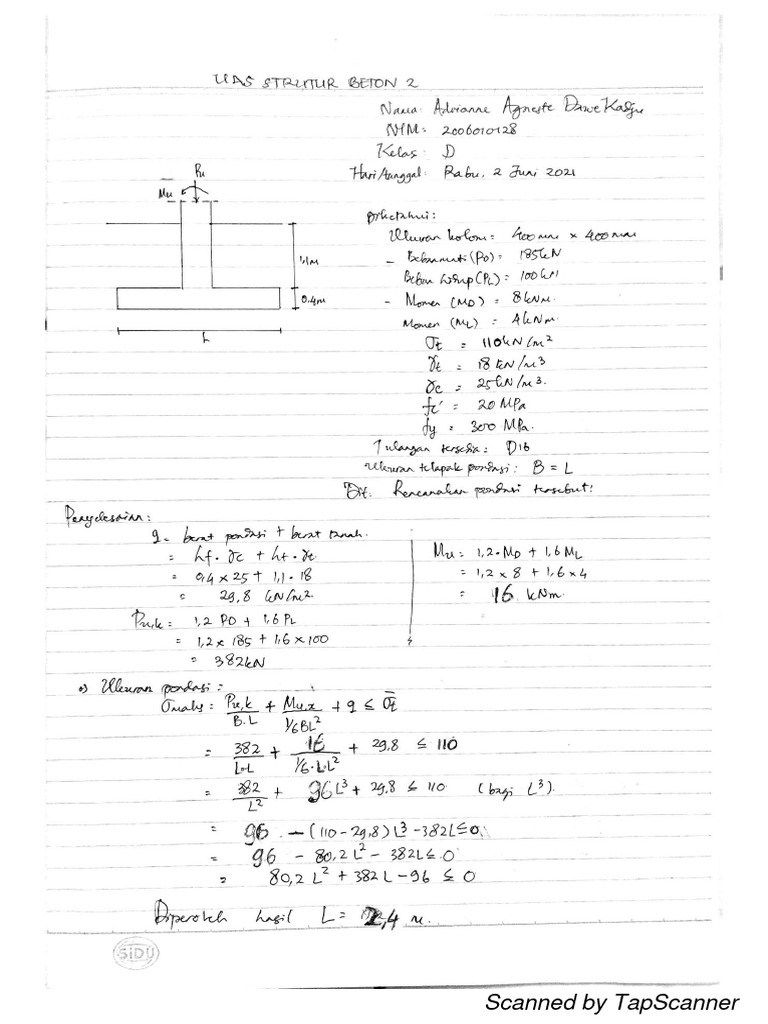 UAS STRUKTUR BETON 2
Nama: Adrianne Agneste Dawe Kadju
NIM: 2006010128
Kelas: D
Hari/tanggal: Rabu, 2 Juni 2021
Pu
Mu
1,1m
0.4m
L
Diketahui:
Ukuran kolom: 400 mm × 400 mm
- Beban mati (PD) = 185 kN
Beban hidup (PL) = 100 kN
- Momen (MD) = 8 kNm.
Momen (ML) = 4 kNm.
σt = 110 kN/m²
γt = 18 kN/m3
γc = 25 kN/m3.
fc' = 20 MPa
fy = 300 MPa.
Tulangan tersedia: D16
Ukuran telapak pondasi: B = L
Dit: Rencanakan pondasi tersebut!
Penyelesaian:
q = berat pondasi + berat tanah.
= hf. γc + ht. γt
= 0,4 x 25 + 1,1 . 18
= 29,8 kN/m².
Pu,k = 1,2 PD + 1,6 PL
= 1,2 x 185 + 1,6 x 100
= 382 kN
Mu = 1,2. MD + 1,6 ML
= 1,2 x 8 + 1,6 x 4
= 16 kNm
Ukuran pondasi:
σmaks = Pu,k/B.L + Mu,x/1/6BL² + q ≤ σt
= 382/L.L + 16/1/6.L.L² + 29,8 ≤ 110
= 382/L² + 96 L³ + 29,8 ≤ 110 (bagi L³).
= 96 - (110-29,8)L³ - 382L ≤ 0
= 96 - 80,2 L² - 382L ≤ 0
= 80,2 L² + 382 L - 96 ≤ 0
Diperoleh hasil L = 2,4 m.
SiDU
Scanned by TapScanner